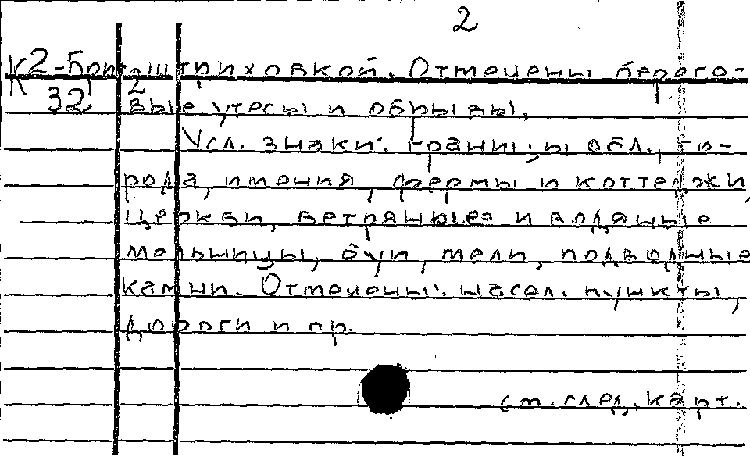 2
К2-Бри штриховкой. Отмечены берего-
32 2 вые утесы и обрывы.
Усл. знаки: границы обл., го-
рода, имения, фермы и коттеджи,
церкви, ветряные и водяные
мельницы, буи, мели, подводные
камни. Отмечены: насел. пункты,
дороги и пр.
см. след. карт.